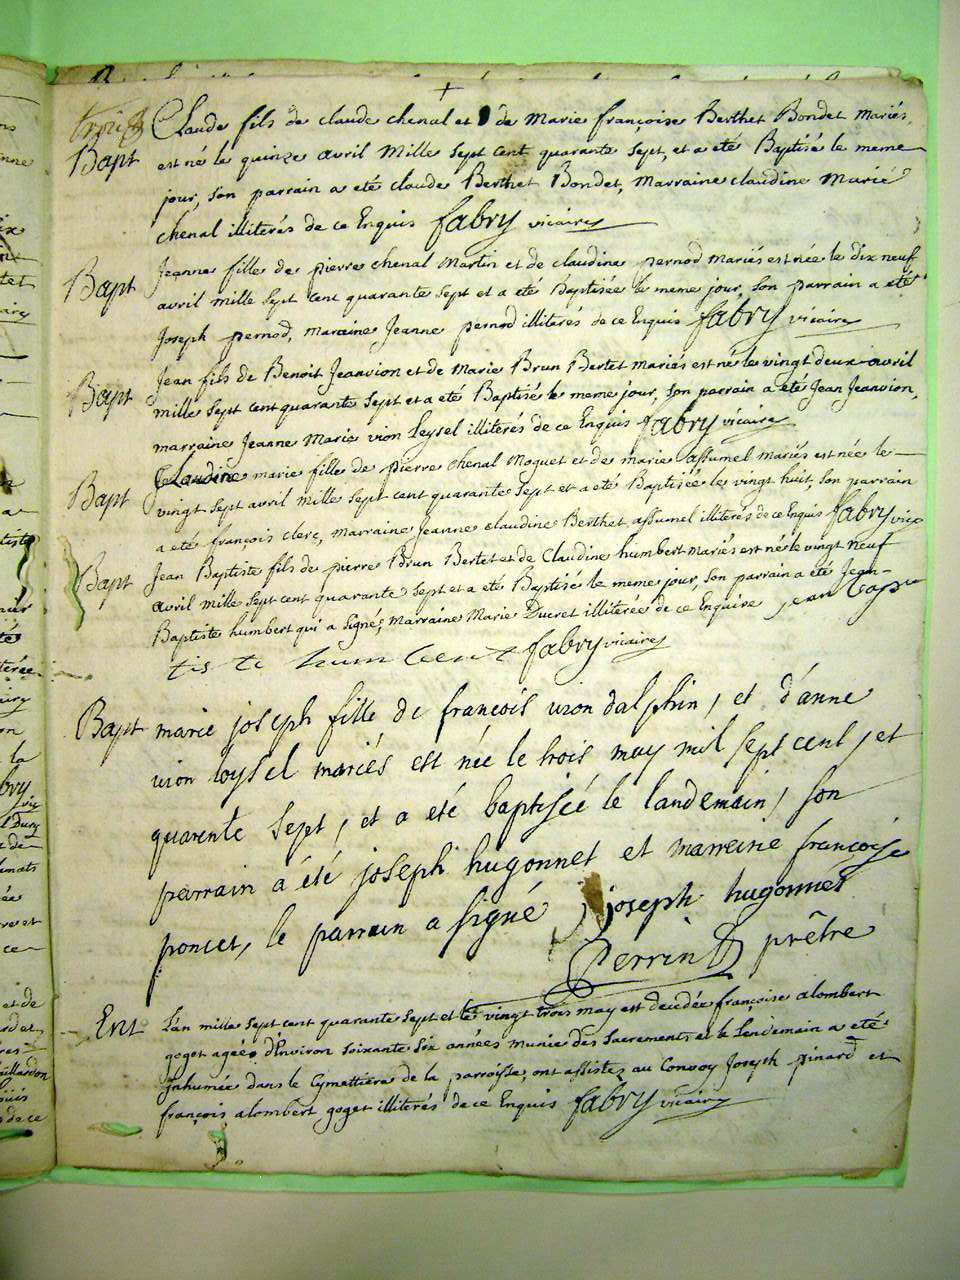 Bapt Claude fils de claude chenal et de Marie françoise Berthet Bondet Mariés,
est né le quinze avril Mille sept cent quarante sept, et a été Baptisé le meme
jour, son parrain a eté claude Berthet Bondet, Marraine claudine Marie
chenal illiterés de ce Enquis fabry vicaire
Bapt Jeanne fille de pierre chenal Martin et de claudine pernod mariés est née le dix neuf
avril mille sept cent quarante sept et a été Baptisée le meme jour, son parrain a eté
Joseph pernod, maraine Jeanne pernod illiterés de ce Enquis fabry vicaire
Bapt Jean fils de Benoit Jeanvion et de Marie Brun Bertet mariés est né le vingt deux avril
mille sept cent quarante sept et a été Baptisé le meme jour, son parrain a eté Jean Jeanvion,
marraine Jeanne Marie vion Leysel illiterés de ce Enquis fabry vicaire
Bapt Claudine marie fille de pierre chenal Moquet et de marie assumel mariés est née le
vingt sept avril mille sept cent quarante sept et a eté Baptisée le vingt huit, son parrain
a eté françois clerc, marraine Jeanne claudine Berthet, assumel illiterés de ce Enquis fabry vice
Bapt Jean Baptiste fils de pierre Brun Bertet et de Claudine humbert mariés est né le vingt neuf
avril mille sept cent quarante sept et a eté Baptisé le meme jour, son parrain a eté Jean-
Baptiste humbert qui a signé, marraine Marie Ducret illiterée de ce Enquise jean bap
tis te hum bert fabry vicaire
Bapt marie joseph fille de françois vion dalphin, et d'anne
vion loysel mariés est née le trois may mil sept cent, et
quarente sept, et a eté baptisée le landemain, son
parrain a été joseph hugonnet et marreine françoise
poncet, le parrain a signé joseph hugonnet
perrin prêtre
Ent L'an mille sept cent quarante sept et le vingt trois may est decedée françoise alombert
goget agée d'Environ soixante six années munie des sacrements et le lendemain a eté
Inhumée dans le Cymettiere de la parroisse, ont assistez au Convoy Joseph pinard et
françois alombert goget illiterés de ce Enquis fabry vicaire